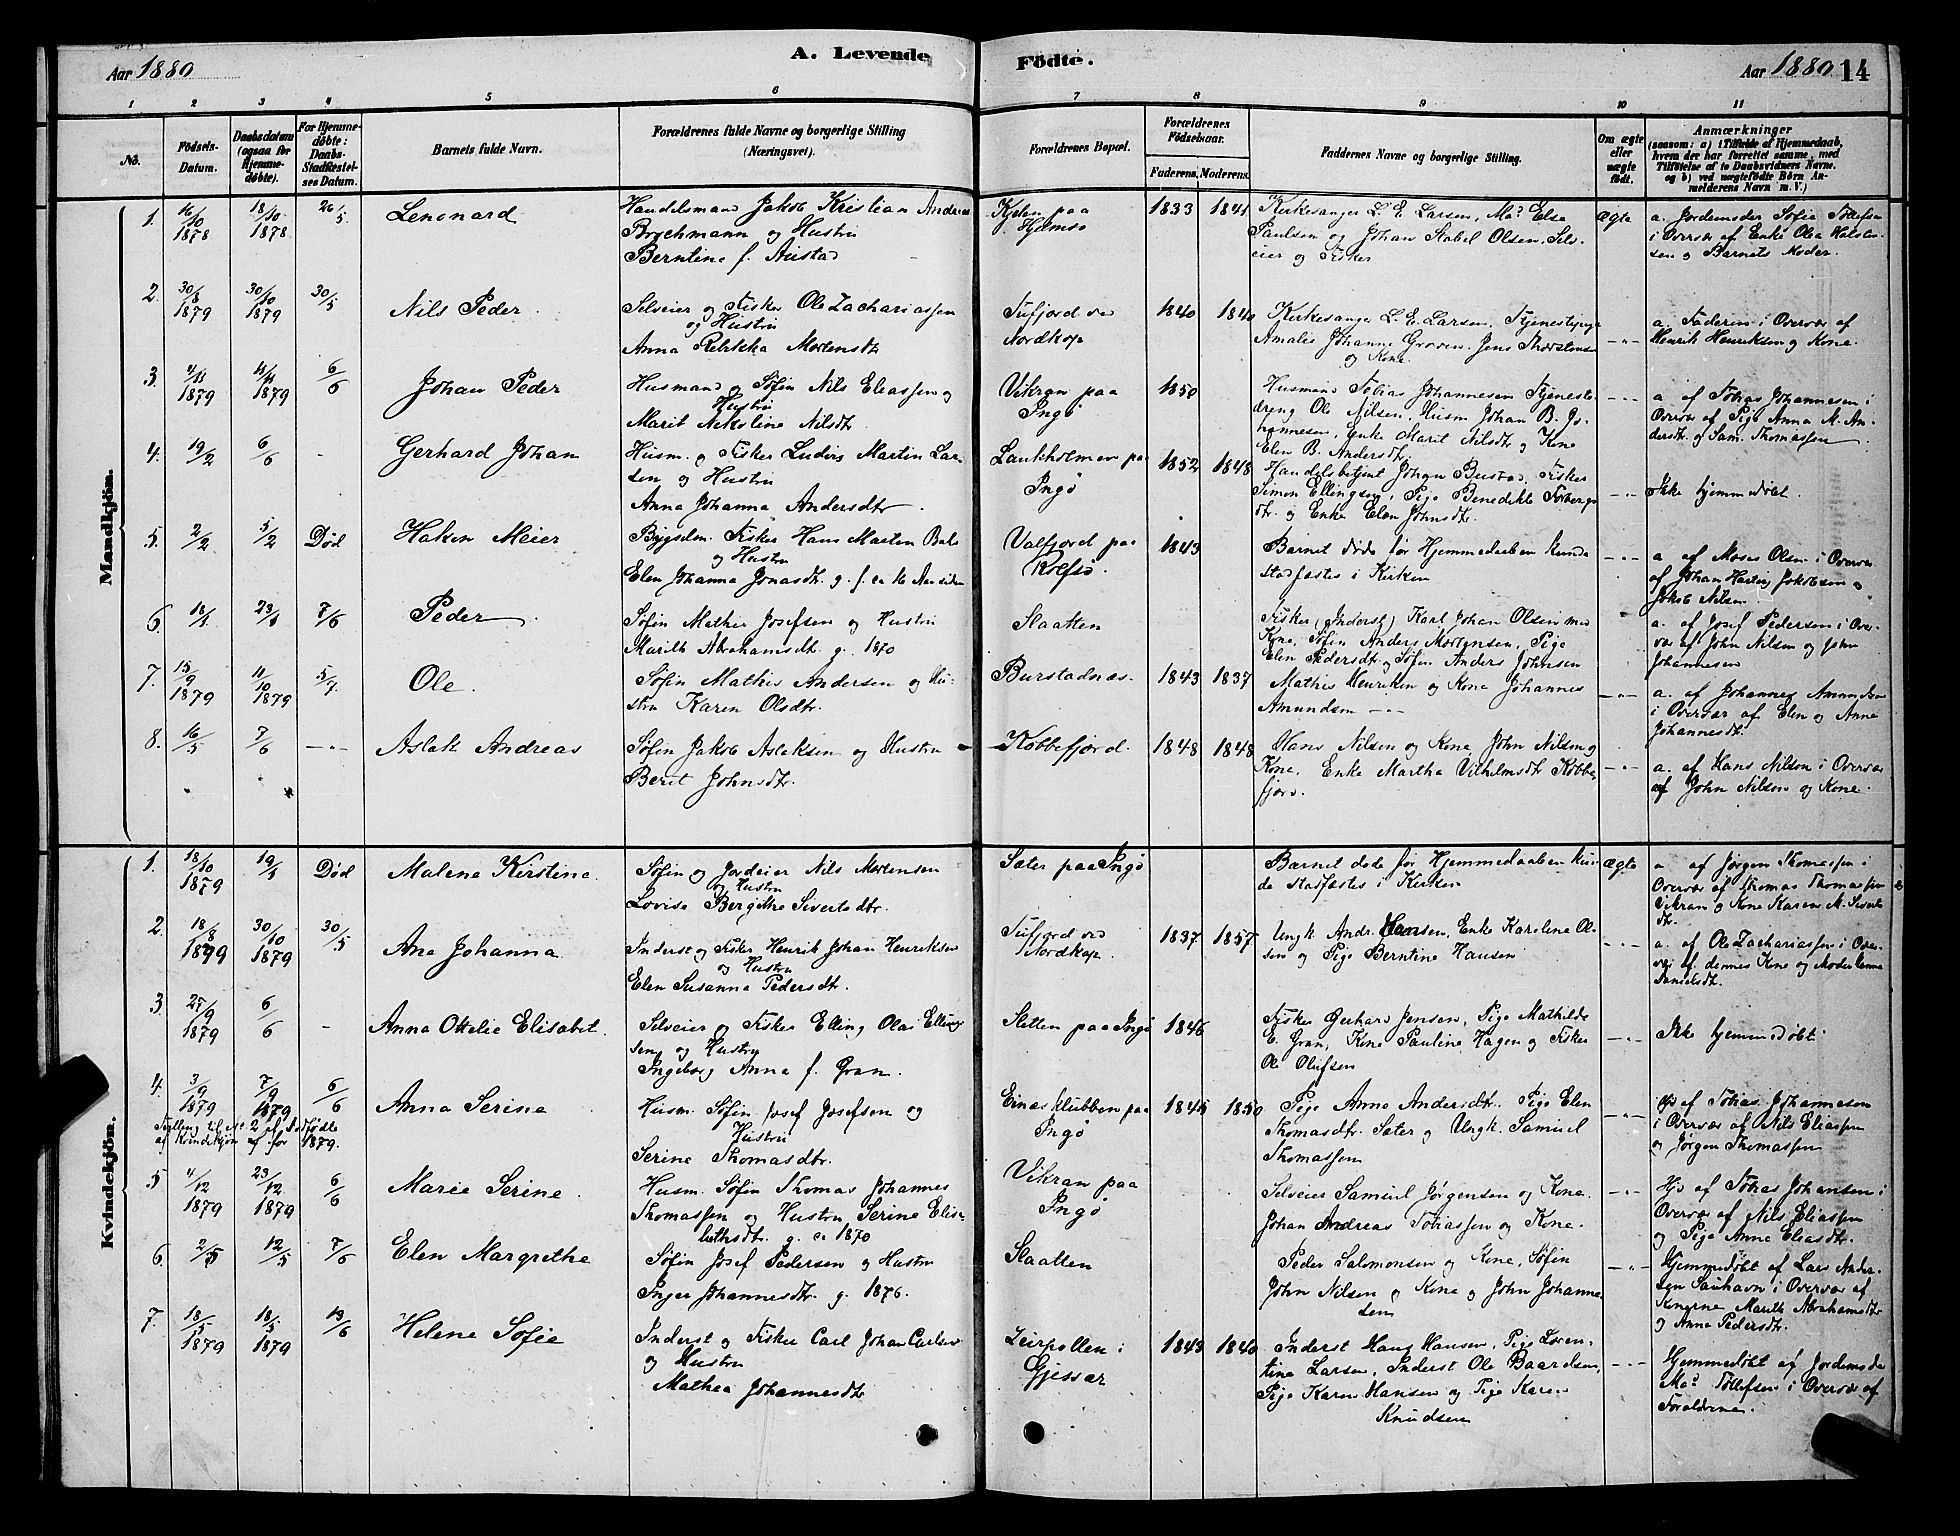 Aar 1880
A. Levende
Födte.
Aar 1880
14
1 2 3 4 5 6 7 8 9 10 11
No.
Födsels-Datum.
Daabsdatum (ogsaa for Hjemme-döbte).
For Hjemme-döbte: Daabs-Stadfæstel-ses Datum.
Barnets fulde Navn.
Forældrenes fulde Navne og borgerlige Stilling (Næringsvei).
Forældrenes Bopæl.
Forældrenes Födselsaar.
Faderens. Moderens.
Faddernes Navne og borgerlige Stilling.
Om ægte eller uægte födt.
Anmærkninger
(saasom: a) i Tilfælde af Hjemmedaab,
hvem der har forrettet samme, med
Tilföielse af to Daabsvidners Navne.
og b) ved uægtefödte Börn An-
melderens Navn m. V.)
Mandkjön.
1. 16/10 1878 18/10 1878 26/5 Lenonard
Handelsmand Jakob Kristian Andreas
Brochmann og Hustru
Berntine f. Austad
Kjelen paa
Hjelmsø
1833 1841
Kirkesanger L. E. Larsen, Mad Elsa
Paulsen og Johan Stabel Olsen, Selv-
eier og Fisker
Ægte
a. Jordemoder Sofie Tollefsen
i Overvær af Enke Ola Halvor-
sen og Barnets Moder.
2. 30/8 1879 30/10 1879 30/5 Nils Peder
Selveier og Fisker Ole Zachariassen
og Hustru
Anna Rebekka Mortensdtr
Tufjord ved
Nordkap
1840 1840
Kirkesanger L. E. Larsen, Tjenestepige
Amalie Johanne Groven, Jens Thorstensen
og Kone.
a. Faderen i Overvær af
Henrik Henriksen og Kone.
3. 4/11 1879 11/11 1879 6/6 Johan Peder
Husmand og Søfin Nils Eliassen og
Hustru
Marit Nikoline Nilsdtr
Vikran paa
Ingø
1850
Husmand Tobias Johannesen Tjeneste-
dreng Ole Nilsen, Husm Johan B. Jo-
hannesen, Enke Marit Nilsdtr og Kone
Elen B. Andersdtr
a. af Tobias Johannesen i
Overvær af Pige Anna M. An-
dersdtr og Sam. Thomassen
4. 19/2 6/6 - Gerhard Johan
Husm. og Fisker Ludvig Martin Lar-
sen og Hustru
Anna Johanna Andersdtr.
Laukholmen paa
Ingø
1852 1848
Handelsbetjent Johan Bustad, Fisker
Simon Ellingsen, Pige Benedikte
dtr. og Enke Elen Johnsdtr.
Ikke hjemmedøbt.
5. 2/2 5/2 Død Haken Meier
Bygselm. Fisker Hans Morten
og Hustru
Elen Johanna Jonasdtr. g. f. ca 16 Aar siden
Valfjord paa
Rolfsø.
1843
Barnet døde før Hjemmedaaben kunde
stadfæstes i Kirken
a af Moses Olsen i Overvær
af Johan Hartvig Jakobsen og
Jakob Nilsen
6. 18/1 23/1 7/6 Peder
Søfin Mathis Josefsen og Hustru
Marith Abrahamsdtr g. 1870
Slaatten
Fisker (Inderst) Karl Johan Olsen med
Kone, Søfin Anders Mortensen, Pige
Elen Pedersdtr og Søfin Anders Johnsen
a. af Josef Pedersen i Over-
vær af John Nilsen og John
Johannesen
7. 15/9 1879 11/10 1879 5/7 Ole.
Søfin Mathis Andersen og Hu-
stru Karen Olsdtr.
Burstadnæs.
1843 1837
Mathis Henriken og Kone Johannes
Amundsen -"-
a. af Johannes Amundsen
i Overvær af Elen og Anne
Johannesdtr
8. 16/5 7/6 -"- Aslak Andreas
Søfin Jakob Aslaksen og Hustru
Berit Johnsdtr.
Kobbefjord.
1848 1848
Hans Nilsen og Kone, John Nilsen og
Kone, Enke Martha Vilhelmsdtr Kobbe-
fjord.
a. af Hans Nilsen i Overvær
af John Nilsen og Kone.
Kvindekjön.
1. 18/10 1879 19/1 Død Malene Kirstine.
Søfin og Jordeier Nils Mortensen
og Hustru
Lovise Bergithe Sivertsdtr.
Sater paa Ingø
Barnet døde før Hjemmedaaben kun-
de stadfæstes i Kirken
Ægte
a. af Jørgen Thomassen i
Overvær af Thomas Thomassen
Vikran og Kone Karen M. Sivert-
dtr.
2. 18/8 1899 30/10 1879 30/5 Ane Johanna
Inderst og Fisker Henrik Johan Henriksen
og Hustru
Elen Susanna Pedersdtr.
Tufjord ved
Nordkap.
1837 1857
Ungk. Andr. Hansen, Enke Karoline Ol-
sen og Pige Berntine Hansen
a. af Ole Zachariassen i Over-
vær af dennes Kone og Moder Anna
Danielsdtr.
3. 27/9 1879 6/6 - Anna Ottelie Elisabet.
Selveier og Fisker Elling Olai Elling-
sen og Hustru
Ingeborg Anna f. Gran.
Sletten paa Ingø
1846
Fisker Gerhard Jensen, Pige Mathilde
E. Gran, Kone Pauline Hagen og Fisker
Ole Olufsen
Ikke hjemmedøbt.
4. 3/9 1879 7/9 1879 6/6 Anna Serine
Tvilling til No 2 af dødfødte
af Kvindekjøn for 1879.
Husm. Søfin Josef Josefsen og
Hustru
Serine Thomasdtr.
Einarsklubben paa
Ingø
1845 1850
Pige Anne Andersdtr. Pige Elen
Thomasdtr. Sater og Ungk. Samuel
Thomassen
Hjd af Tobias Johannesen
i Overvær af Nils Eliassen
og Jørgen Thomassen
5 4/12 1879 23/12 1879 6/6 Marie Serine.
Husm. Søfin Thomas Johannes
Thomassen og Hustru Serine Elisa-
bethsdtr. g. ca 1870
Vikran paa
Ingø
Selveier Samuel Jørgensen og Kone.
Johan Andreas Tobiassen og Kone.
Hjd af Tobias Johansen i
Overvær af Nils Eliassen
og Pige Anne Eliasdtr.
6. 2/5 12/5 7/6 Elen Margrethe
Søfin Josef Pedersen og Hustru
Inger Johannesdtr. g. 1876.
Slaatten
Peder Salomonsen og Kone, Søfin
John Nilsen og Kone og John Johanne-
sen
Hjemmedøbt af Lars Ander-
sen Sauhavn i Overvær af
Konerne Marith Abrahamsdtr
og Anna Pedersdtr.
7. 18/5 1879 18/5 1879 13/6 Helene Sofie
Inderst og Fisker Carl Johan Carlsen
og Hustru
Mathea Johannesdtr
Leirpollen i
Gjessvær
1843 1840
Inderst Hans Hansen, Pige Loren-
tina Larsen, Inderst Ole Baardsen,
Pige Karen Hansen og Pige Karen
Knudsen
Hjemmedøbt af Jordemoder
Mad Tollefsen i Overvær af
Forældrene.